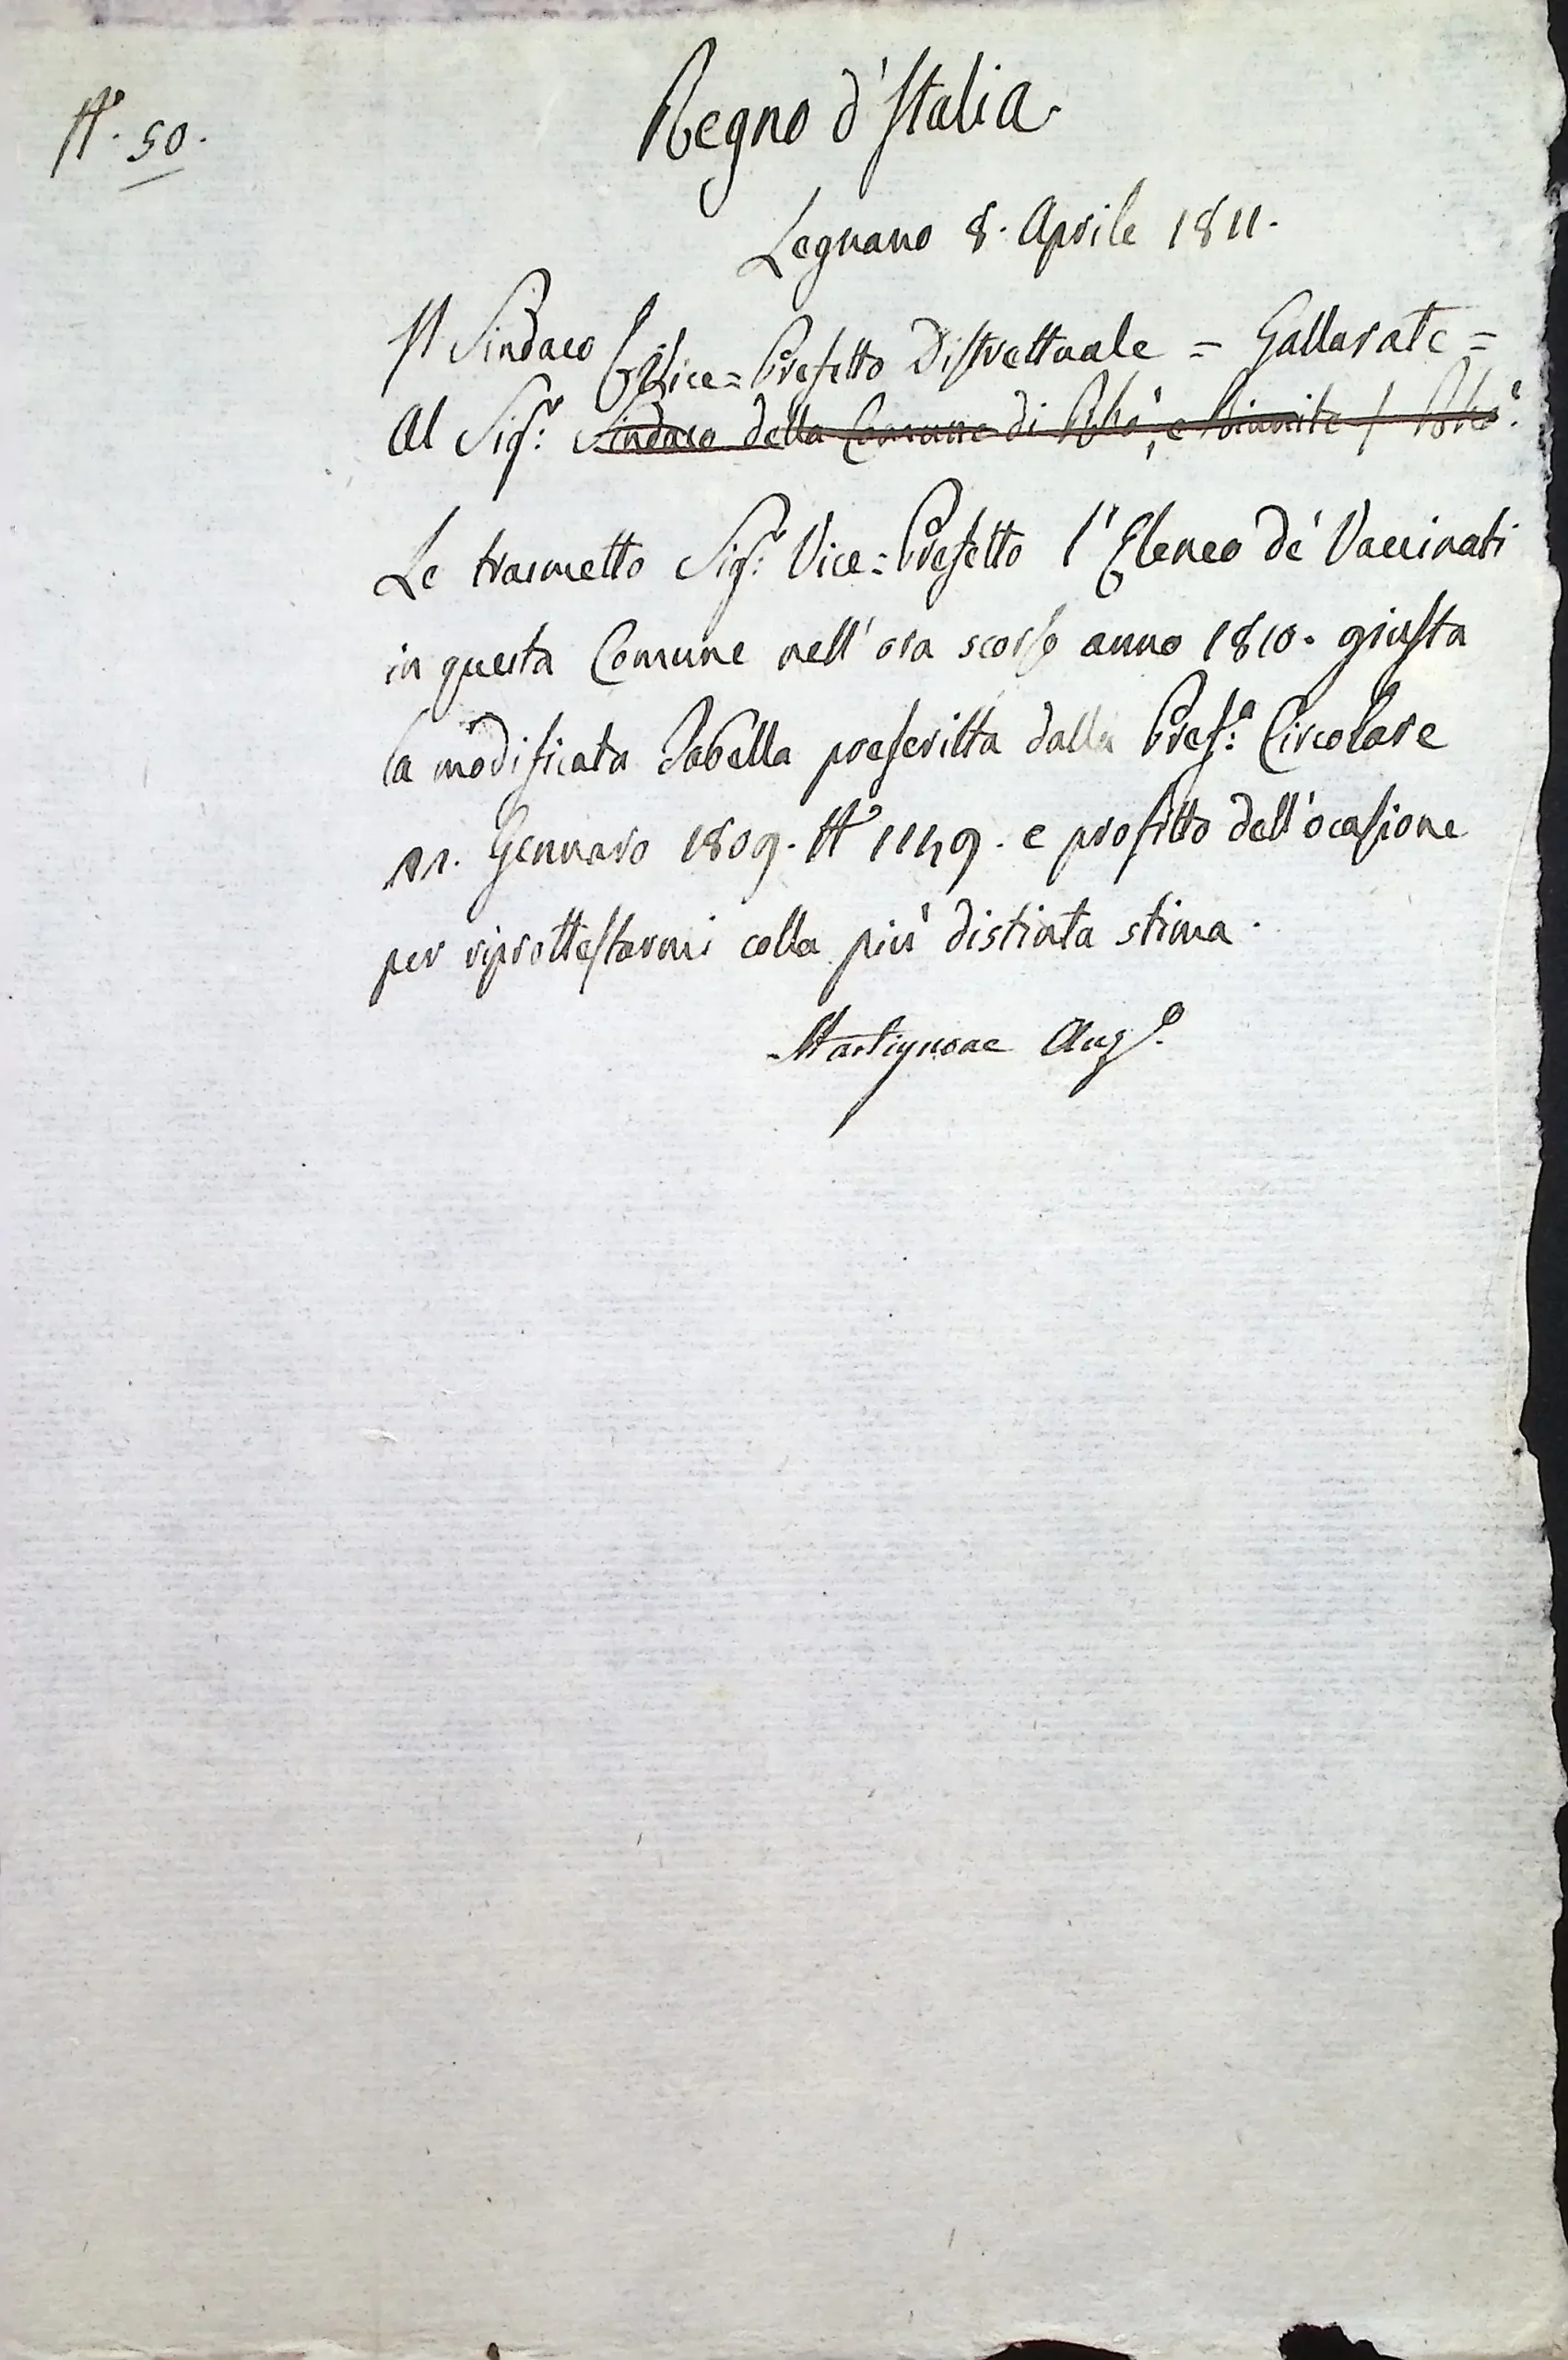 N.° 50.
Regno d'Italia.
Legnano 8. Aprile 1811.
Il Sindaco
Vice=Prefetto Distrettuale = Gallarate =
Al Sig.r Sindaco della Comune di Rhò, e Riunite / Rhò.
Le trasmetto Sig.r Vice=Prefetto l'Elenco de' Vaccinati
in questa Comune nell'ora scorso anno 1810. giusta
la modificata Tabella prescritta dalla Pref.a Circolare
21. Gennaro 1809. N° 1149. e profitto dell'ocasione
per riprottestarmi colla più distinta stima.
Martignone Aug.o